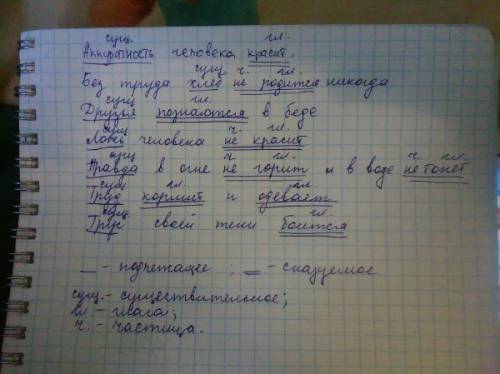 сущ. гл.
Аккуратность человека красит.
сущ ч. гл.
Без труда хлеб не родится никогда
сущ гл.
Друзья познаются в беде
сущ ч. гл.
Ложь человека не красит
сущ ч. гл. ч. гл.
Правда в огне не горит и в воде не тонет
сущ гл. гл
Труд кормит и одевает
сущ гл.
Трус своей тени боится
— подлежащее ; = - сказуемое
сущ. - существительное;
гл - глагол;
ч. - частица.